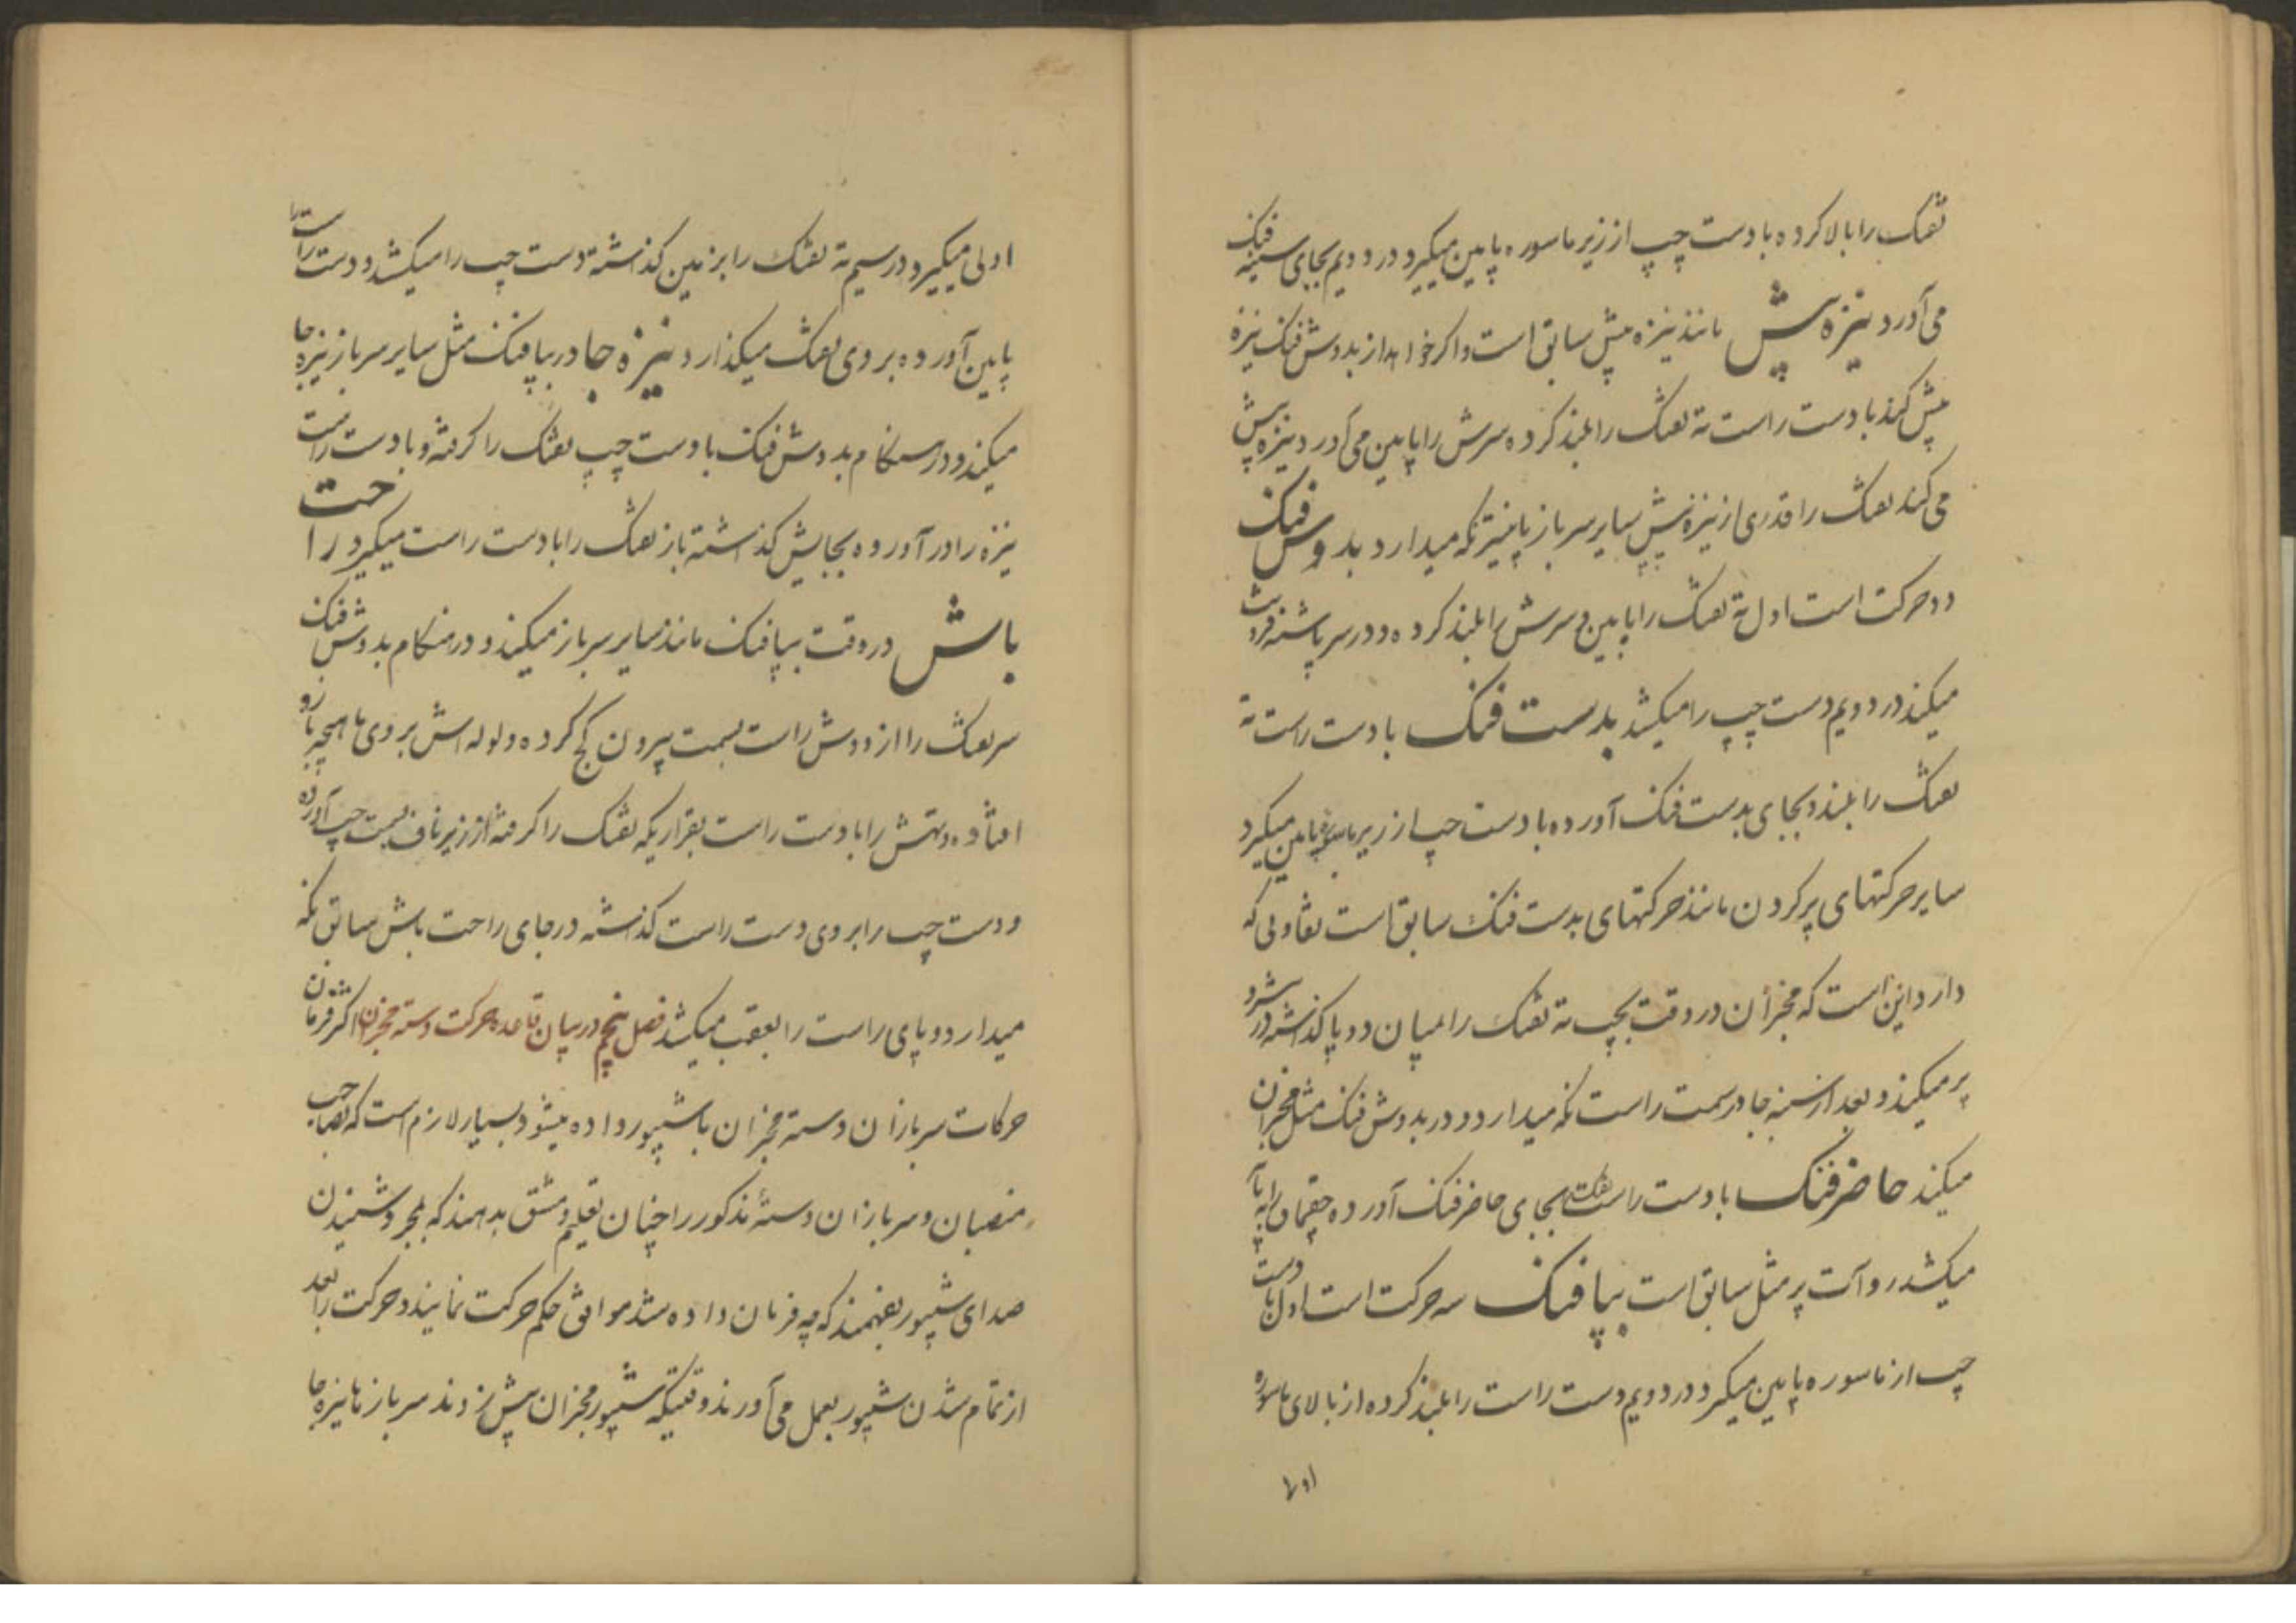 تفنک را بالا کرده با دست چپ از زیر ماسوره پایین میگیرد و در دویم بجای سینه فنک
می آورد نیزه پیش مانند نیزه پیش سابق است و اگر خواهد از بدوش فنک نیزه
پیش کند با دست راست ته تفنک را بلند کرده سرش را پایین می آورد و نیزه پیش
می کند تفنک را قدری از نیزه پیش سایر سرباز پایینتر نگه میدارد بدوش فنک
دو حرکت است اول ته تفنک را پایین و سرش را بلند کرده و در سر پاشنه فرو
میکند در دویم دست چپ را میکشد بدست فنک با دست راست ته
تفنک را بلند و بجای بدست فنک آورده با دست چپ از زیر ماسوره پایین میگیرد
سایر حرکتهای پر کردن مانند حرکتهای بدست فنک سابق است تفاوتی که
دارد این است که مخبران در وقت بچپ ته تفنک را میان دو پا گذاشته
پر میکند و بعد از سنبه جا در سمت راست نگه میدارد و در بدوش فنک مثل مخبران
میکند حاضر فنک با دست راست تفنک بجای حاضر فنک آورده چقماق را بپا
میکشد رو آت پر مثل سابق است بپا فنک سه حرکت است اول با دست
چپ از ماسوره پایین میگیرد و در دویم دست راست را بلند کرده از بالای ماسوره
اولی
اولی میگیرد در سیم ته تفنک را بر زمین گذاشته دست چپ را میکشد و دست راست را
پایین آورده بروی تفنک میگذارد نیزه جا در بپا فنک مثل سایر سرباز نیزه جا
میکند و در هنگام بدوش فنک با دست چپ تفنک را گرفته و با دست راست
نیزه را در آورده بجایش گذاشته باز تفنک را با دست راست میگیرد راحت
باش در وقت بپا فنک مانند سایر سرباز میکند و در هنگام بدوش فنک
سر تفنک را از دوش راست بسمت بیرون کج کرده و لوله اش بروی ماهیچه بازو
افتاده و تهش را با دست راست بقراریکه تفنک را گرفته از زیر ناف بسمت چپ آورده
و دست چپ را بروی دست راست گذاشته در جای راحت باش سابق نگه
میدارد و پای راست را بعقب میکشد فصل پنجم در بیان قاعده حرکت دسته مخبران اکثر فرمان
حرکات سربازان دسته مخبران با شیپور داده میشود بسیار لازم است که صاحب
منصبان و سربازان دستهٔ مذکور را چنان تعلیم و مشق بدهند که بمجرد شنیدن
صدای شیپور بفهمند که چه فرمان داده شد موافق حکم حرکت نمایند و حرکت را بعد
از تمام شدن شیپور بعمل می آورند وقتیکه شیپور مخبران پیش زدند سربازها نیزه جا